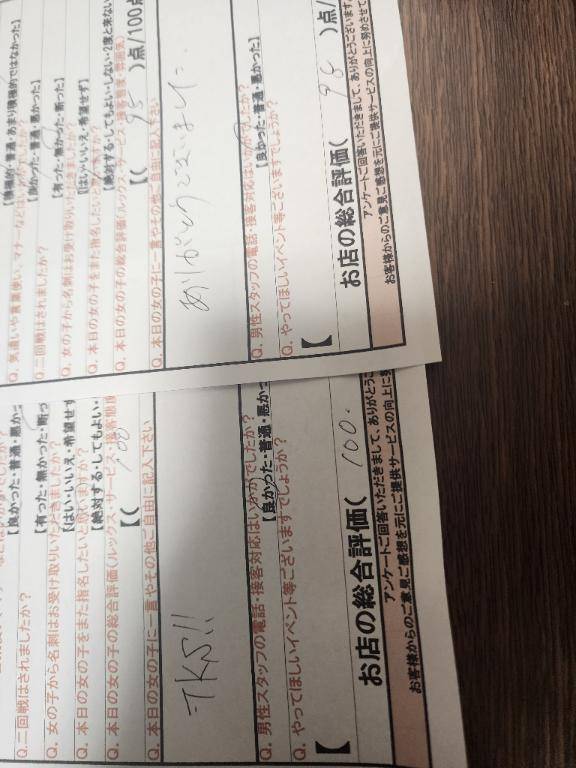 積極的・普通・あまり積極的ではなかった】
Q. 気遣いや言葉使い、マナーなどはいかがでしたか？
【良かった・普通・悪かった】
Q. 二回戦はされましたか？
【有った・無かった・断った】
Q. 女の子から名刺はお受け取りいただきましたか？
【はい・いいえ・希望せず】
Q. 本日の女の子をまた指名したいと思いますか？
【絶対する・してもよい・しない・2度と来ない
Q. 本日の女の子の総合評価(ルックス・サービス・接客態度・雰囲気)
【( 95 )点/100点
Q. 本日の女の子に一言やその他ご自由に記入下さい
ありがとうございました.
Q. 男性スタッフの電話・接客対応はいかがでしたか？
【良かった・普通・悪かった】
Q. やってほしいイベント等ございますでしょうか？
【
お店の総合評価( 95 )点/
アンケートご回答いただきまして、ありがとうございます。
お客様からのご意見ご感想を元にご提供サービスの向上に努めさせて
【良かった・普通・悪かっ
Q. 二回戦はされましたか？
【有った・無かった・断っ
Q. 女の子から名刺はお受け取りいただきましたか？
【はい・いいえ・希望せず
Q. 本日の女の子をまた指名したいと思いますか？
【絶対する・してもよい・
Q. 本日の女の子の総合評価(ルックス・サービス・接客態度
【( 100
Q. 本日の女の子に一言やその他ご自由に記入下さい
TKS!!
Q. 男性スタッフの電話・接客対応はいかがでしたか？
【良かった・普通・悪かっ
Q. やってほしいイベント等ございますでしょうか？
【
お店の総合評価( 100.
アンケートご回答いただきまして、ありがとうご
お客様からのご意見ご感想を元にご提供サービスの向上に努